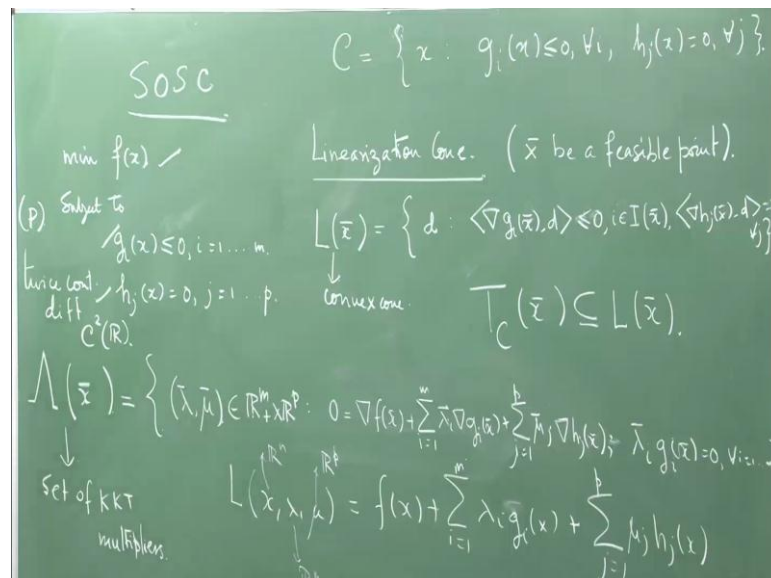 C = { x : g_i(x) ≤ 0, ∀i, h_j(x) = 0, ∀j }.
SOSC
min f(x)
(P) Subject to
g_i(x) ≤ 0, i = 1 ... m.
twice cont. diff
h_j(x) = 0, j = 1 ... p.
C²(ℝ).
Linearization Cone. (x̄ be a feasible point).
L(x̄) = { d : <∇g_i(x̄), d> ≤ 0, i ∈ I(x̄), <∇h_j(x̄), d> =
∀j }
↓
convex cone.
T_C(x̄) ⊆ L(x̄).
Λ(x̄) = { (λ̄, μ̄) ∈ ℝ^m_+ × ℝ^p : 0 = ∇f(x̄) + ∑_{i=1}^m λ̄_i ∇g_i(x̄) + ∑_{j=1}^p μ̄_j ∇h_j(x̄), λ̄_i g_i(x̄) = 0, ∀i = 1...
↓
Set of KKT
multipliers.
ℝ^n ℝ^p
L(x, λ, μ) = f(x) + ∑_{i=1}^m λ_i g_i(x) + ∑_{j=1}^p μ_j h_j(x)